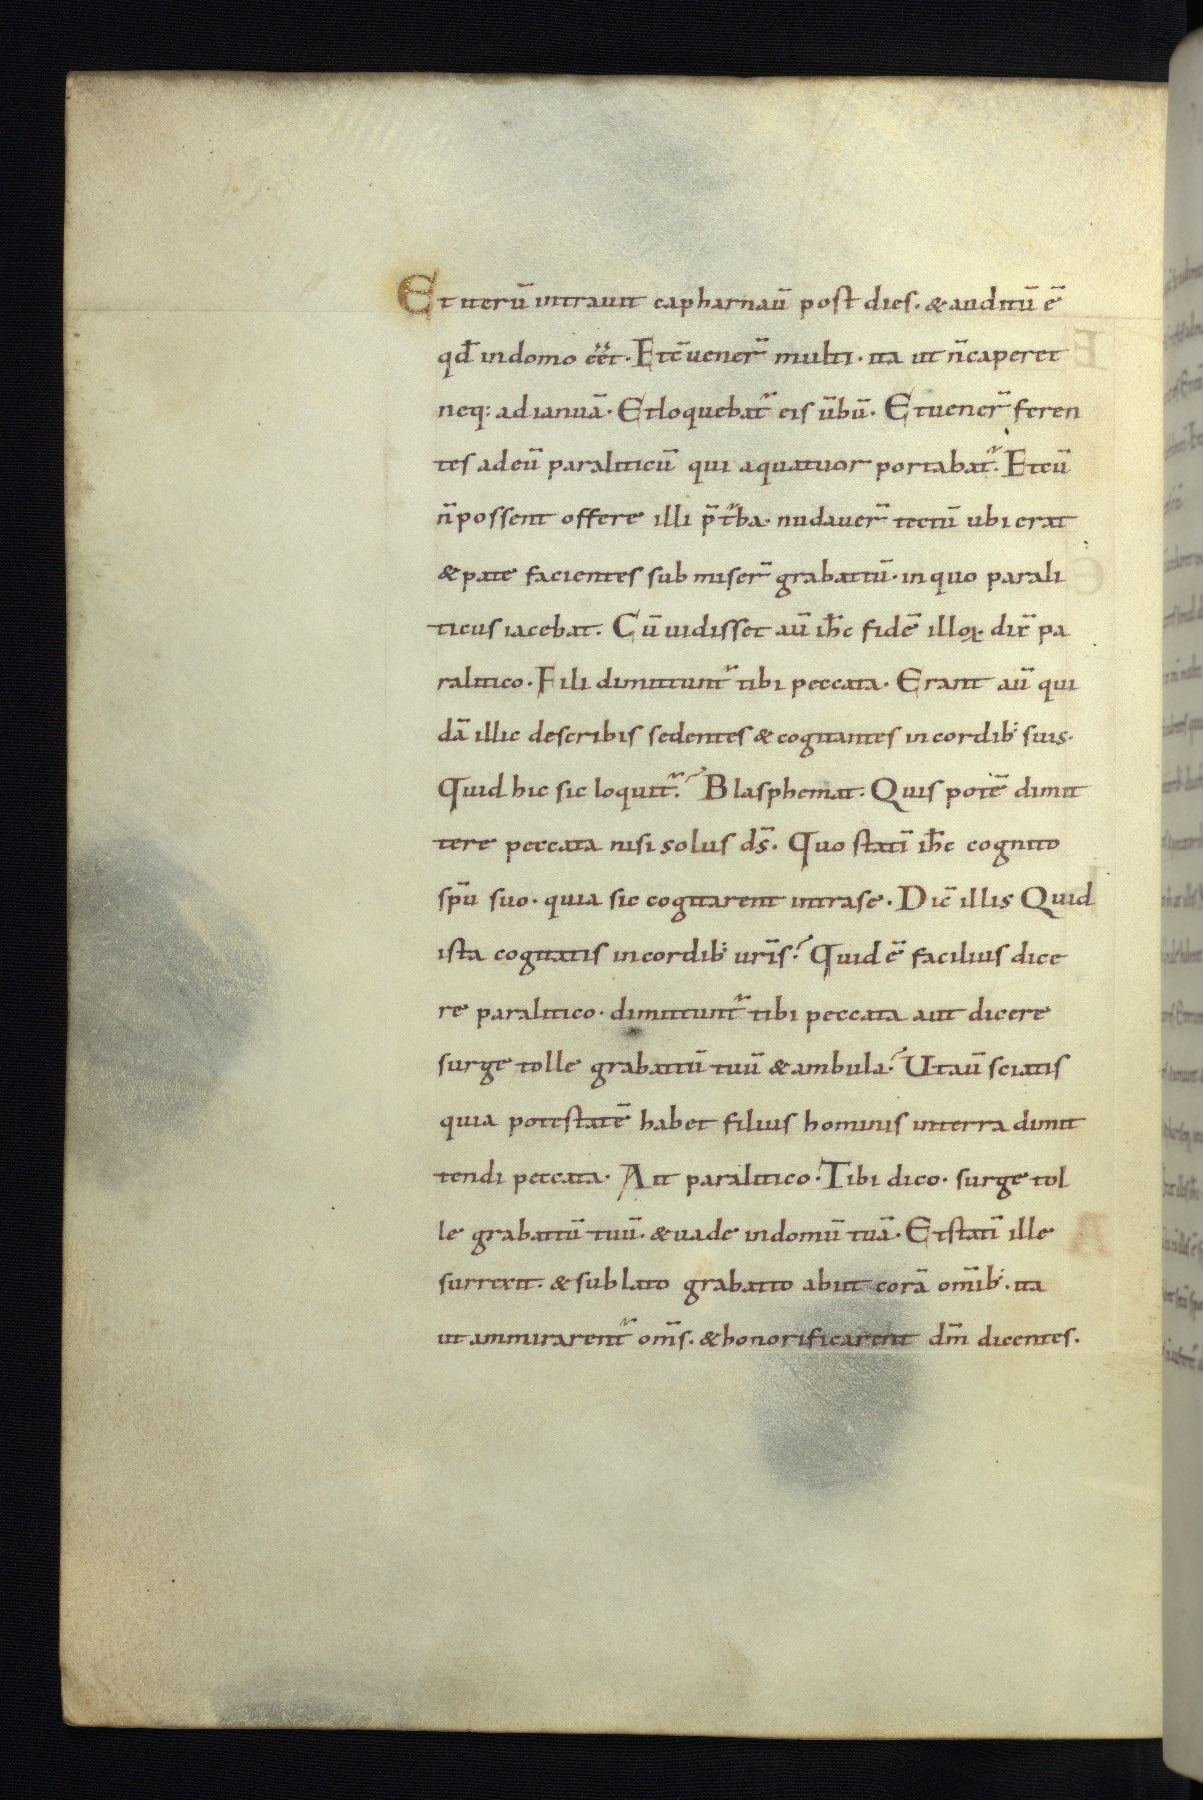 Et iterū intrauit capharnaū post dies. & auditū ē
qđ in domo eēt. Et cūener̄ multi. ita ut n̄ caperet
neq: ad ianuā. Et loquebat᷑ eis ūbū. Et uener̄ feren
tes ad eū paraliticū qui a quatuor portabat᷑. Et cū
n̄ possent offere illi p̄ t᷑ba. nudauer̄ tectū ubi erat
& pate facientes sub miser̄ grabattū. in quo parali
ticus iacebat. Cū uidisset aū ih̄c fidē illoꝝ dix̄ pa
ralitico. Fili dimittunt᷑ tibi peccata. Erant aū qui
dā illic de scribis sedentes & cogitantes in cordib; suis.
Quid hic sic loquit᷑? Blasphemat. Quis potē dimit
tere peccata nisi solus d̄s. Quo statī ih̄c cognito
sp̄u suo. quia sic cogitarent intra se. Dic̄ illis Quid
ista cogitatis in cordib; ur̄is? Quid ē facilius dice
re paralitico. dimittunt᷑ tibi peccata aut dicere
surge tolle grabattū tuū & ambula? Ut aū sciatis
quia potestatē habet filius hominis in terra dimit
tendi peccata. Ait paralitico. Tibi dico. surge tol
le grabattū tuū. & uade in domū tuā. Et statī ille
surrexit. & sublato grabatto abiit corā om̄ib;. ita
ut ammirarent᷑ om̄s. & honorificarent dm̄ dicentes.